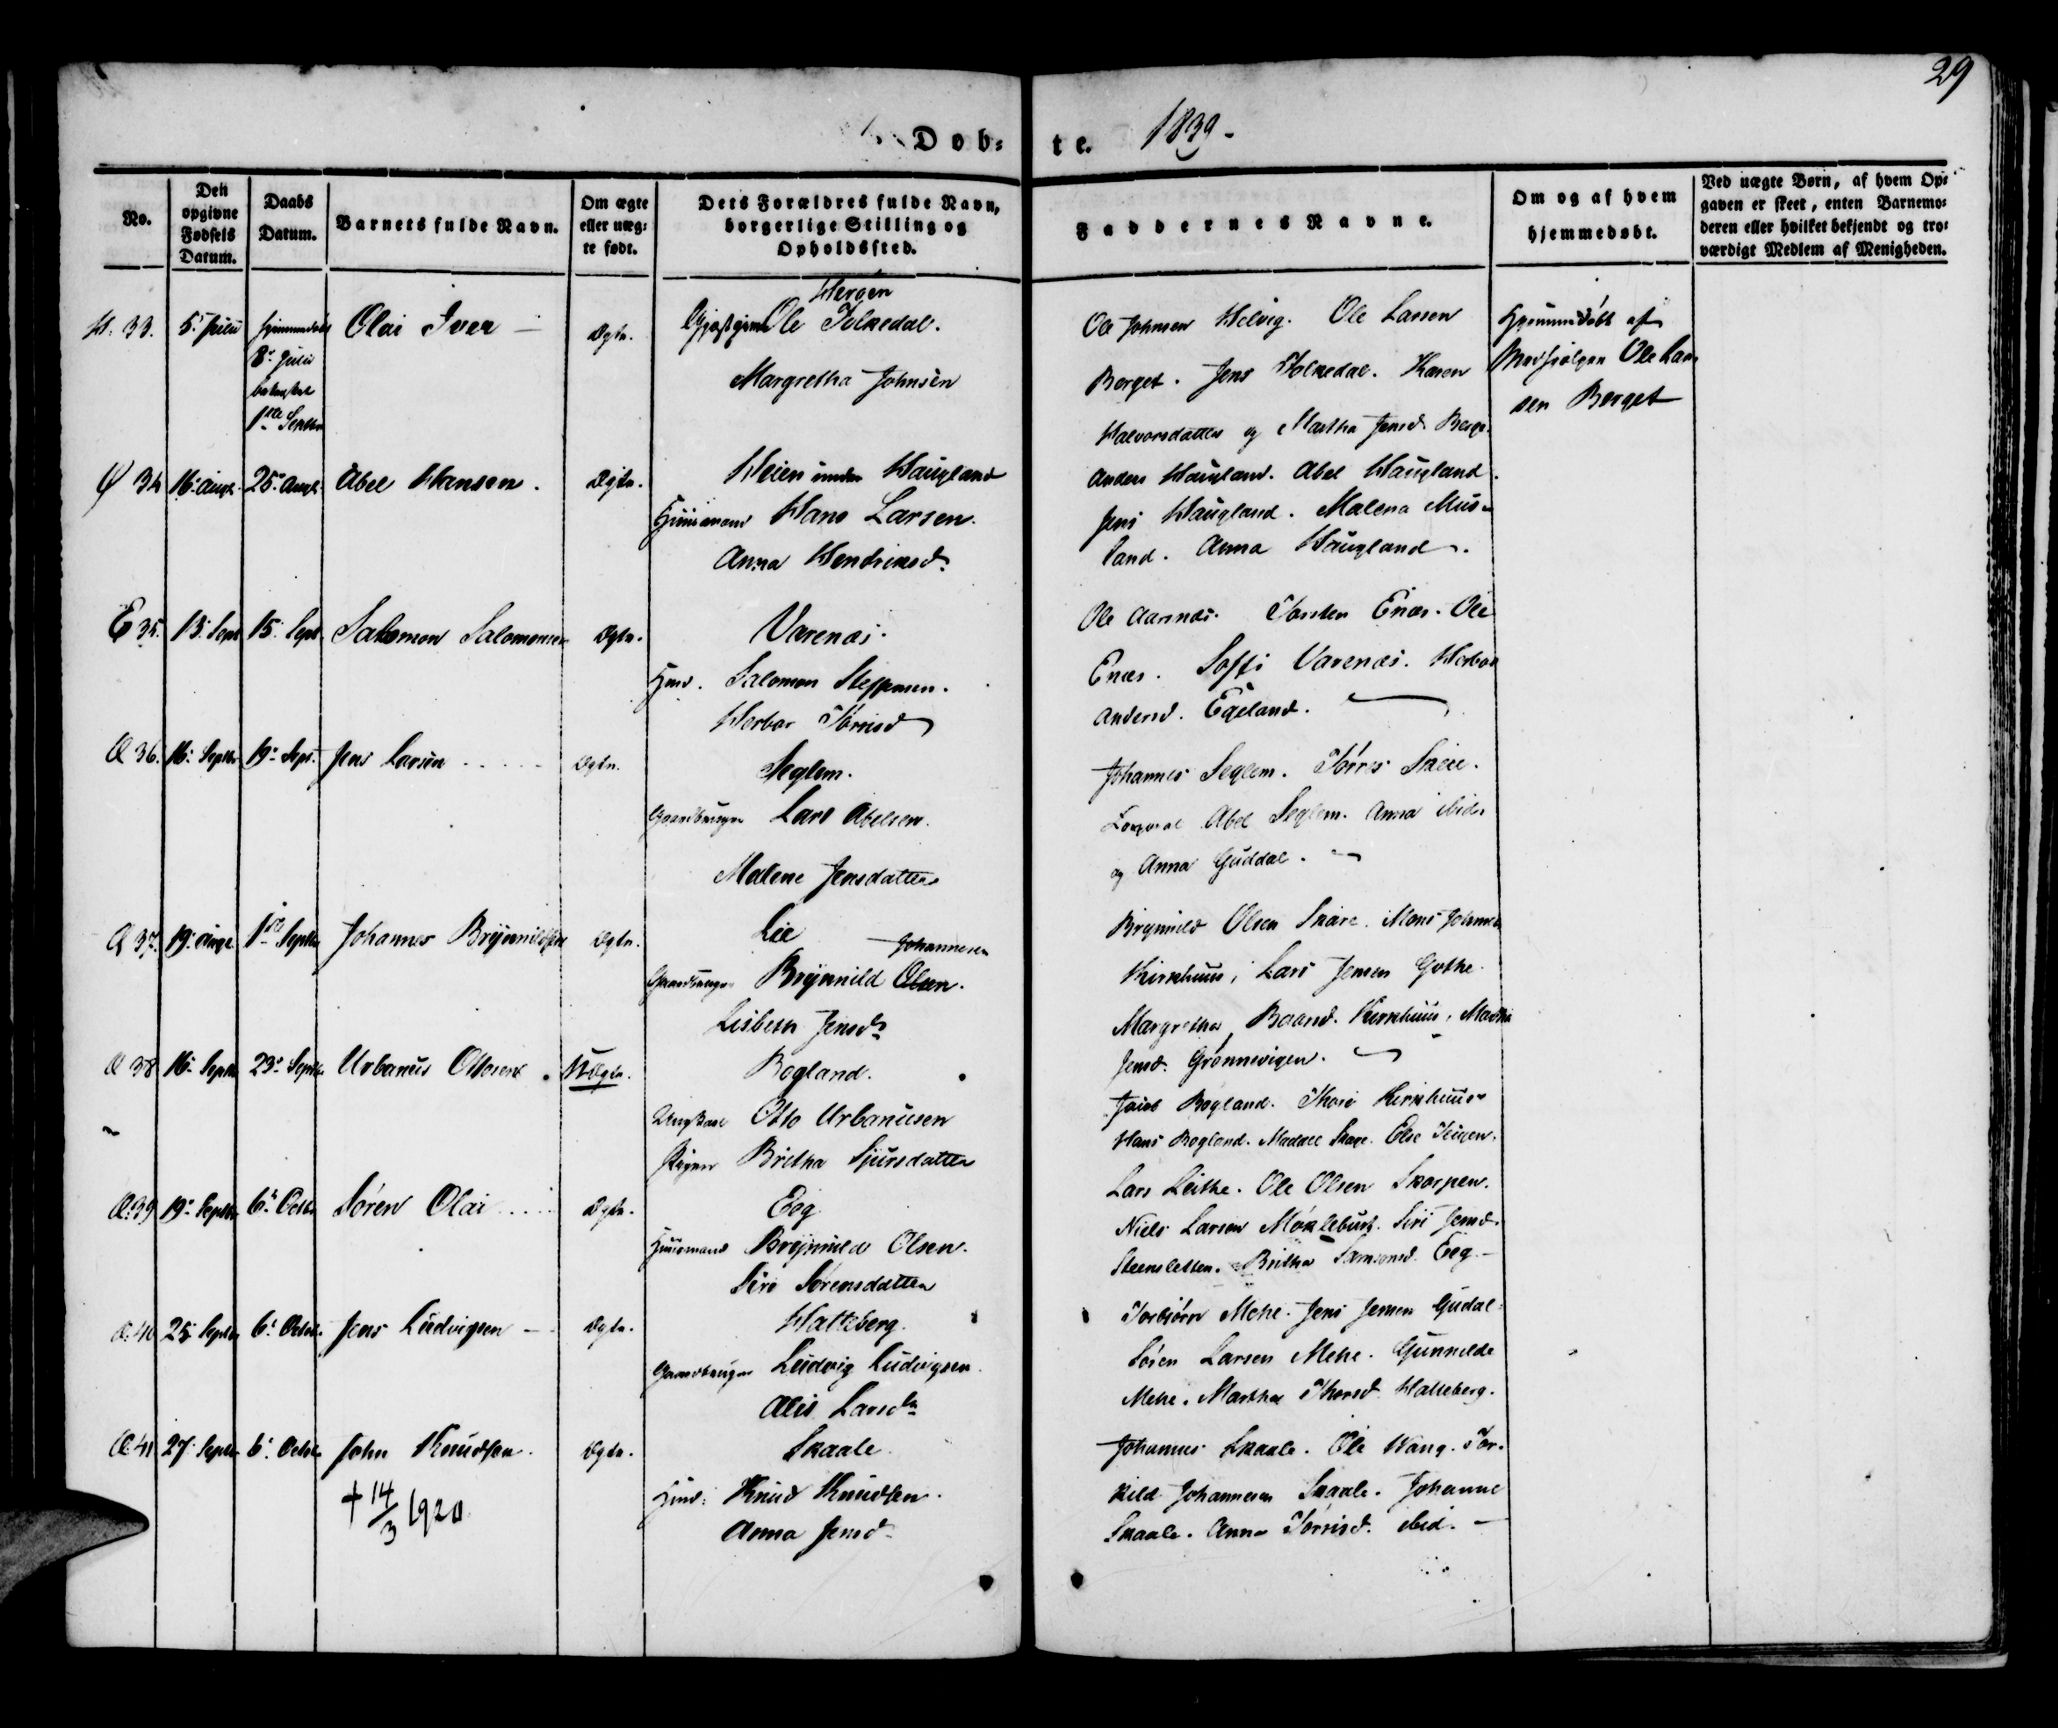 29
Døb= te. 1839.
No.
Den opgivne Fødsels Datum.
Daabs Datum.
Barnets fulde Navn.
Om ægte eller uæg= te født.
Dets Forældres fulde Navn, borgerlige Stilling og Opholdssted.
Faddernes Navne.
Om og af hvem hjemmedøbt.
Ved uægte Børn, af hvem Op= gaven er skeet, enten Barnemo= deren eller hvilket bekjendt og tro= værdigt Medlem af Menigheden.
33. 5te Julii
8de Julii
1ste Septbr
Olai Iver — Ægte.
Ole Folkedal.
Margretha Johnsen
Ole Johnsen Helvig. Ole Larsen
Berget. Jens Folkedal. Karen
Halvorsdatter og Martha Jensd. Berge.
Hjemmedøbt af
Ole Lar=
sen Berget
34 16. Augt. 25. Augt. Abel Hansen. Ægte.
Heien under Haugland
Huusmand Hans Larsen.
Anna Hendriksd.
Anders Haugland. Abel Haugland.
Jens Haugland. Malena Mus=
land. Anna Haugland.
35. 13. Sept 15. Sept Salomon Salomonsen Ægte.
Varenæs.
Huusd. Salomon Steffensen.
Herbor Tørrisd
Ole Aarsnæs. Torsten Enæs. Ole
Enæs. Soffi Varenæs. Herbor
Andersd. Egeland.
36. 16. Septbr 19. Sept. Jens Larsen Ægte.
Seglem.
Gaardbruger Lars Abelsen.
Malene Jensdatter
Johannes Seglem. Tørres Skeie.
Corporal Abel Seglem. Anna ibid.
og Anna Guddal.
37. 19. Augt. 1ste Septbr Johannes Brynnildsen Ægte.
Lie
Johannesen
Gaardbruger Brynnild Olsen.
Lisbeth Jensdr
Brynnild Olsen Skare. Mons Johannes
Kirkhuus, Lars Jensen Gothe.
Margretha Baard. Kirkhuus, Martha
Jensd. Grønnevigen.
38 16. Septbr 23. Septbr Urbanus Ottosen. Uægte.
Bogland.
Ungkarl Otto Urbanusen
Pigen Britha Sjursdatter
Jacob Bogland. Thore Kirkhuus
Hans Bogland. Madael Skare. Else Teigen.
39 19. Septbr 6. Octbr Søren Olai Ægte.
Eeg
Huusmand Brynnild Olsen.
Siri Sørensdatter
Lars Leithe. Ole Olsen Skorpen.
Niels Larsen Møklebust. Siri Jensd.
Steensletten. Britha Samsonsd. Eeg. —
40 25. Septbr 6. Octbr. Jens Ludvigsen — Ægte.
Hatteberg.
Gaardbruger Ludvig Ludvigsen.
Alis Larsdr
Torbiørn Mehe. Jens Jensen Gudal.
Søren Larsen Mehe. Gunnilde
Mehe. Martha Thorsd. Hatteberg.
41 27. Septbr 6. Octbr. John Knudsen. Ægte.
† 14/3 1920
Skaale.
Huusd. Knud Knudsen.
Anna Jensd.
Johannes Skaale. Ole Wang. Tor=
kild Johannesen Skaale. Johanne
Skaale. Anna Tørrisd. ibid. —